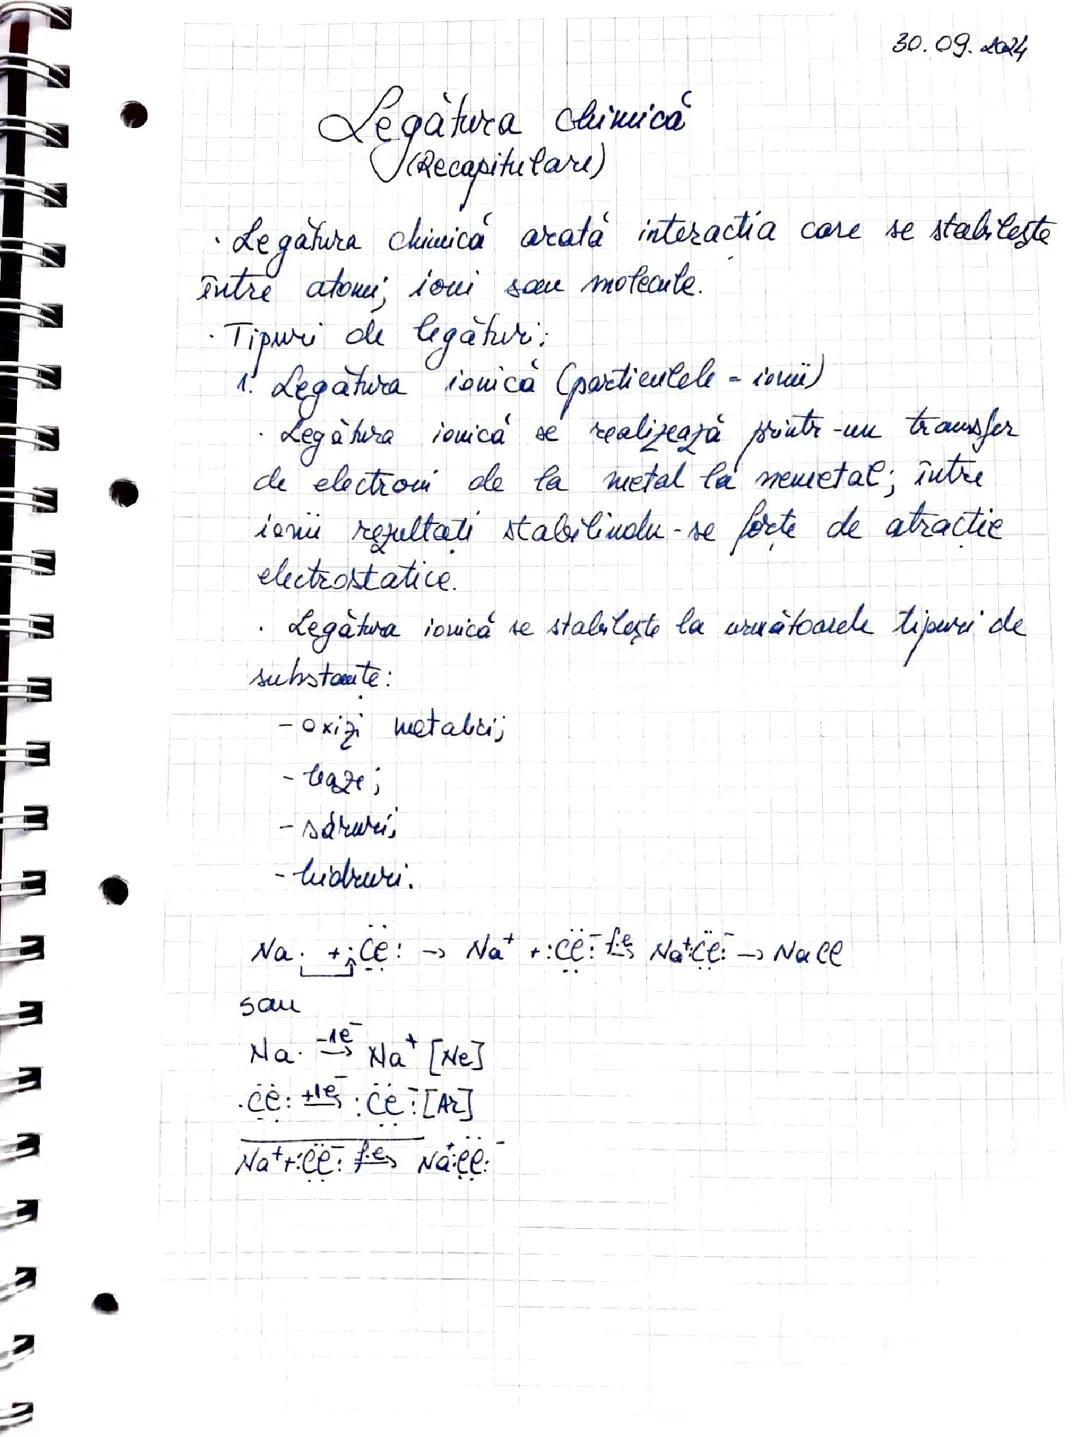 30.09.2024
Legătura chimică
(Recapitulare)
· Legătura chimică arată interactia care se stabilește
între atomi; ioni sau molecule.
· Tipuri de legături:
1. Legătura ionică (particulele - ionii)
· Legătura ionică se realizează printr-un transfer
de electroni de la metal la nemetal; între
ionii rezultati stabilindu-se forțe de atracție
electrostatice.
· Legătura ionică se stabilește la următoarele tipuri de
substante:
- oxizi metalici;
- baze;
- săruri;
- hidruri.
Na· + :Cl: → Na⁺ + :Cl:⁻ f.e. → Na⁺:Cl:⁻ → NaCl
sau
Na· -1e⁻ → Na⁺ [Ne]
·Cl: +1e⁻ → :Cl:⁻ [Ar]
Na⁺ + :Cl:⁻ f.e. → Na⁺:Cl:⁻